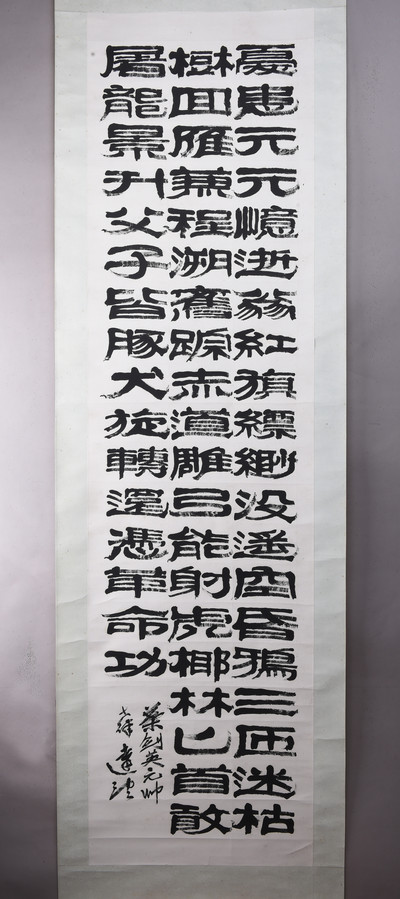 憂患元元憶逝翁紅旗縹緲没遥空昏鴉三匝迷枯
樹回雁兼程溯舊踪赤道雕弓能射虎椰林匕首敢
屠龍景升父子皆豚犬旋轉還憑革命功
葉剑英元帅
七律遠望